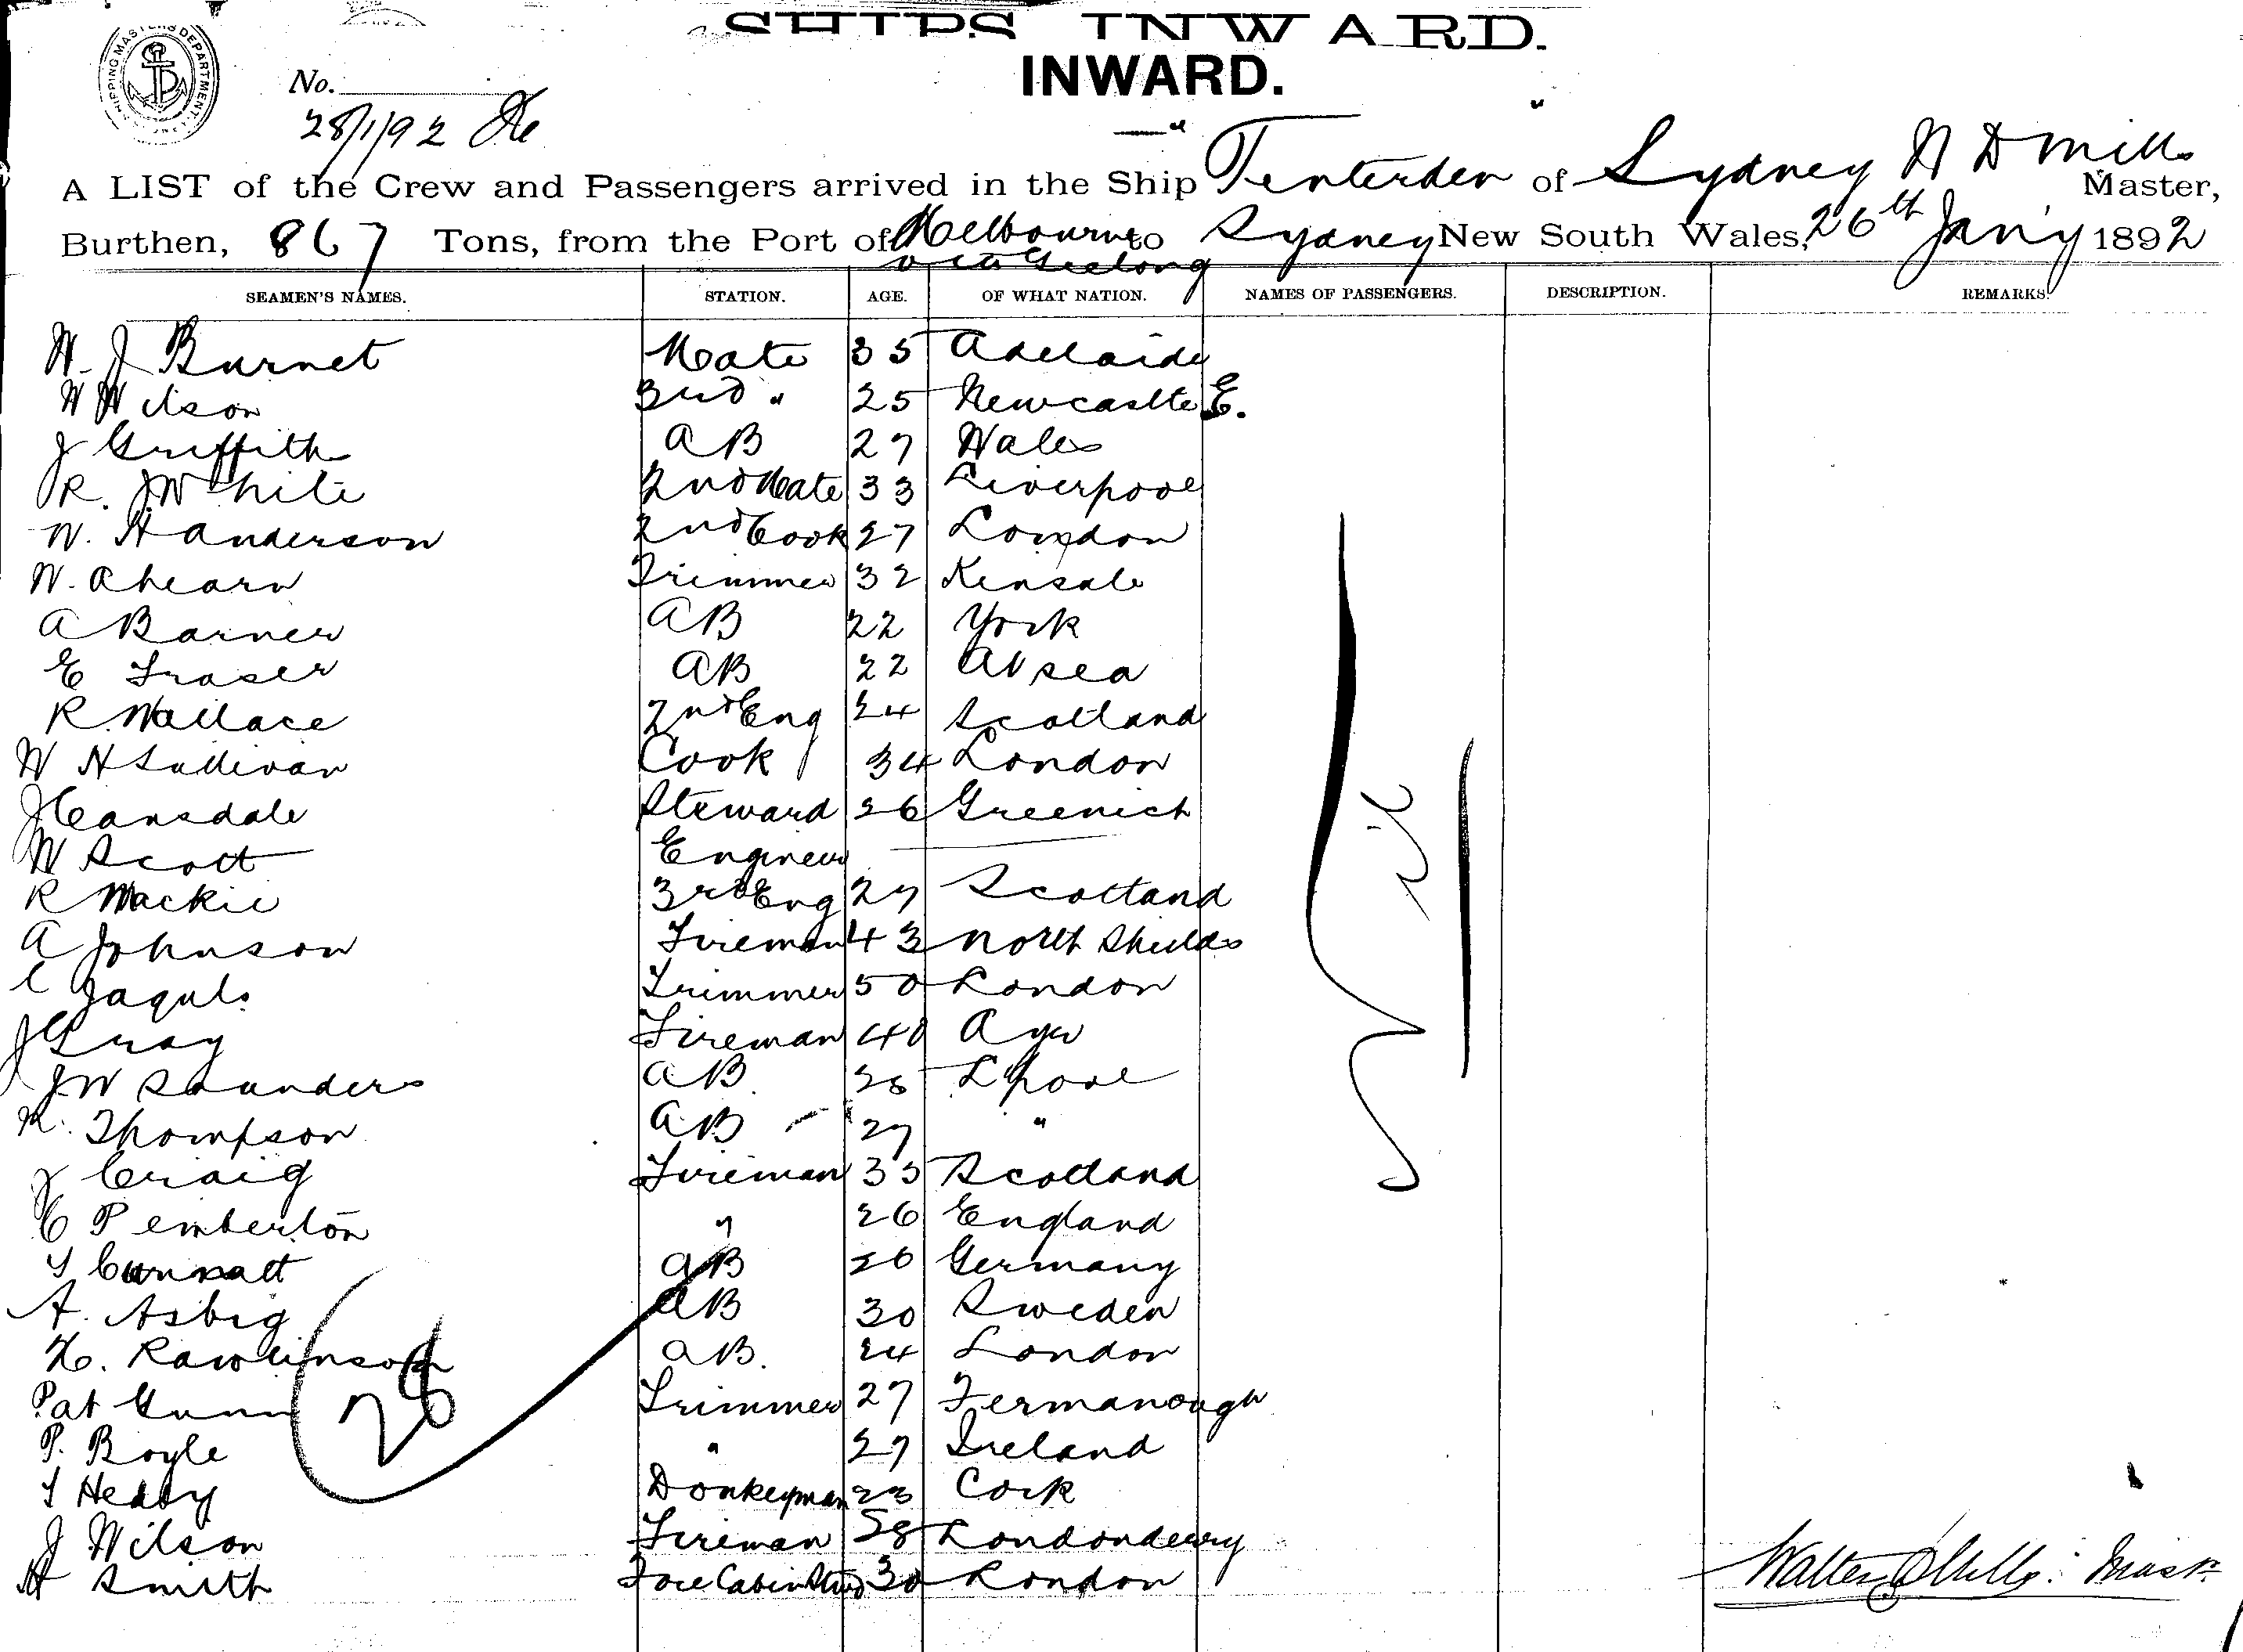 SHIPS INWARD.
INWARD.
SHIPPING MASTER'S DEPARTMENT
No.
28/1/92
A LIST of the Crew and Passengers arrived in the Ship Tenterden of Sydney W D Mills Master,
Burthen, 867 Tons, from the Port of Melbourne to Sydney New South Wales, 26th Jan'y 1892
via Geelong
SEAMEN'S NAMES. STATION. AGE. OF WHAT NATION. NAMES OF PASSENGERS. DESCRIPTION. REMARKS.
W. J Burnet Mate 35 Adelaide
W Wilson 3rd " 25 Newcastle E.
J Griffith AB 27 Wales
R. J White 2nd Mate 33 Liverpool
W. H Anderson 2nd Cook 27 London
W. Ahearn Trimmer 32 Kinsale
A Barner AB 22 York
E Fraser AB 22 At sea
R. Wallace 2nd Eng 24 Scotland
W H Sullivan Cook 34 London
J Cansdale Steward 26 Greenich
W Scott Engineer
R Mackie 3rd Eng 27 Scotland
A Johnson Fireman 43 North Shields
C Trimmer 50 London
J Gray Fireman 40 Ayr
J W Saunders AB 28 L'pool
R. Thompson AB 27 "
J Craig Fireman 33 Scotland
C Pemberton " 26 England
AB 26 Germany
A. Asbig AB 30 Sweden
H. Rawlinson AB. 24 London
Pat Gunn Trimmer 27 Fermanough
P. Boyle " 27 Ireland
T Donkeyman 23 Cork
J Wilson Fireman 38 Londonderry
H Smith Fore Cabin Stwd 30 London
Nil
28
Walter D Mills: Mast.